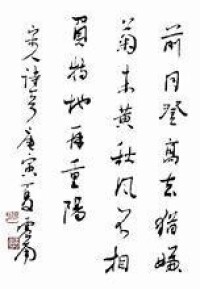 前月登高去猶嫌
菊未黃秋風不相
負特地再重陽
宋人詩 庚寅夏